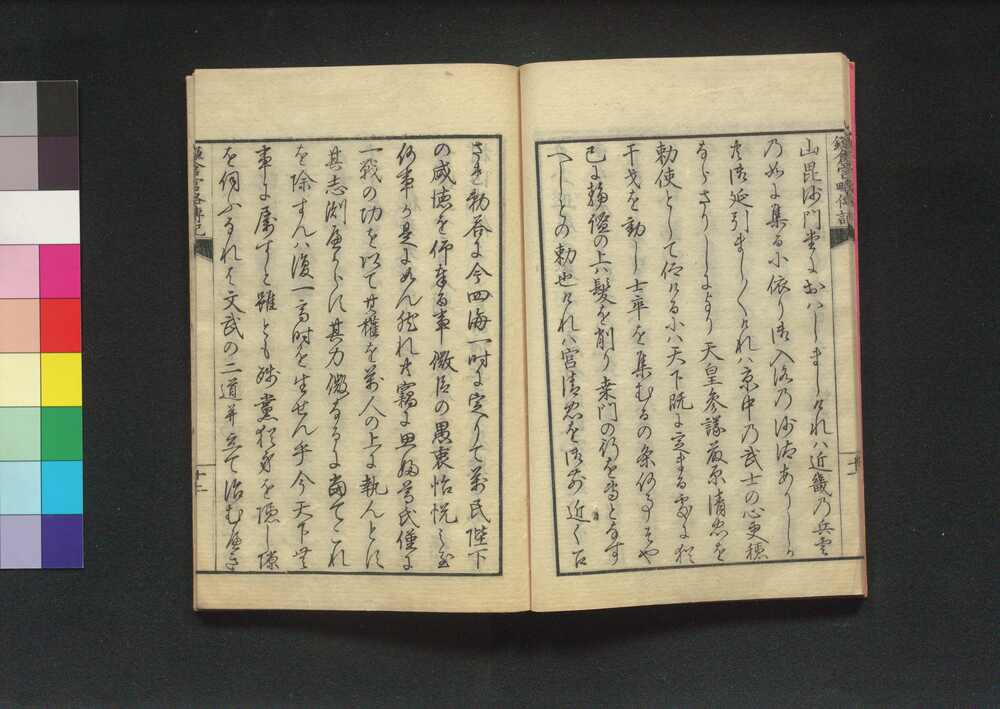 鎌倉宮略傳記
山毘沙門堂におハしましけれハ近畿乃兵雲
乃如に集る小依り御入洛乃沙汰ありしか
御延引ましましけれハ京中乃武士の心更穏
ならさりしにより 天皇参議藤原清忠を
勅使として仰ける小ハ天下既に定まる處に猶
干戈を動し士卒を集むるの条何事そや
已に静謐の上ハ髪を削り桑門の行を専となす
へしとの勅也けれハ宮清忠を御前近く召
十一
され勅答に今四海一時に定りて萬民陛下
の威徳を仰奉る事微臣の愚衷怡悦之至
何事か是に如ん然れ共竊に思ふ尊氏僅に
一戦の功を以て其権を萬人の上に執んとす
其志測へからす其力微なるに當てこれ
を除すんハ復一高時を生せん乎今天下無
事に属すと雖とも残黨猶身を隠し隙
を伺ふなれは文武の二道并立て治むへき
鎌倉宮略傳記
十二